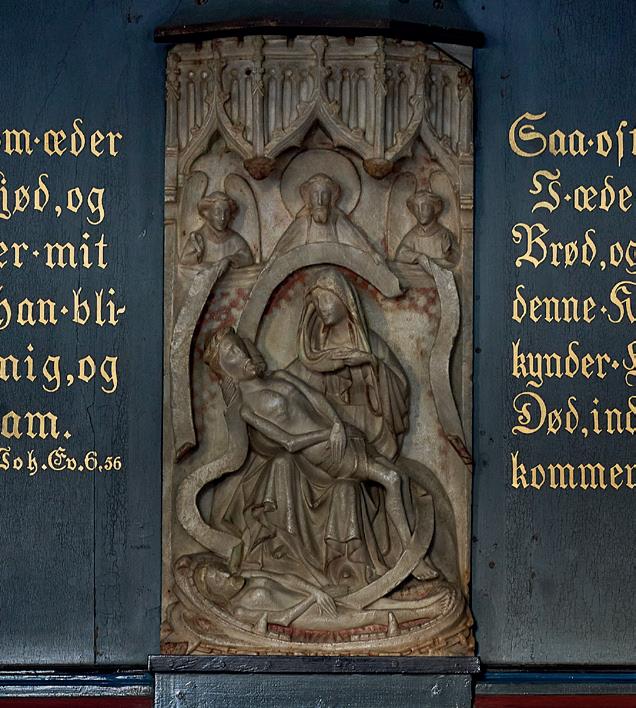 m·æder
jød,og
er·mit
han·bli-
mig,og
am.
Joh.Ev.6,56
Saa·oft
I·æde
Brød,og
denne·K
kynder·
Død,ind
kommer